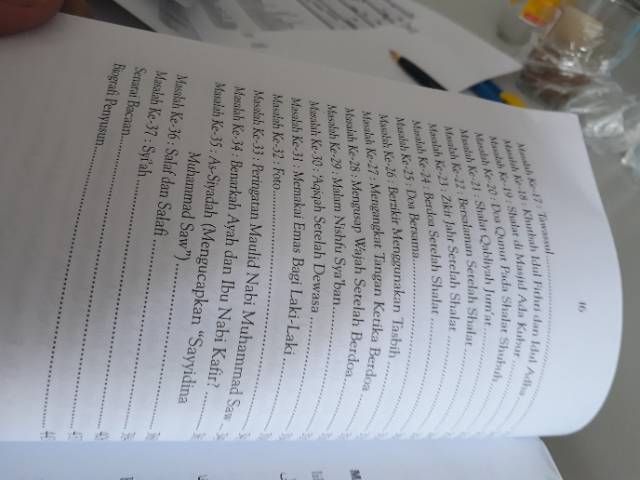 16
Masalah Ke-17 : Tawassul
Masalah Ke-18 : Khutbah Idul Fithri dan Idul Adha
Masalah Ke-19 : Shalat di Masjid Ada Kubur
Masalah Ke-20 : Doa Qunut Pada Shalat Shubuh
Masalah Ke-21 : Shalat Qabliyah Jum'at
Masalah Ke-22 : Bersalaman Setelah Shalat
Masalah Ke-23 : Zikir Jahr Setelah Shalat
Masalah Ke-24 : Berdoa Setelah Shalat
Masalah Ke-25 : Doa Bersama
Masalah Ke-26 : Berzikir Menggunakan Tasbih
Masalah Ke-27 : Mengangkat Tangan Ketika Berdoa
Masalah Ke-28 : Mengusap Wajah Setelah Berdoa
Masalah Ke-29 : Malam Nishfu Sya'ban
Masalah Ke-30 : 'Aqiqah Setelah Dewasa
Masalah Ke-31 : Memakai Emas Bagi Laki-Laki
Masalah Ke-32 : Foto
Masalah Ke-33 : Peringatan Maulid Nabi Muhammad Saw
Masalah Ke-34 : Benarkah Ayah dan Ibu Nabi Kafir?
Masalah Ke-35 : As-Siyadah (Mengucapkan "Sayyidina
Muhammad Saw")
Masalah Ke-36 : Salaf dan Salafi
Masalah Ke-37 : Syi'ah
Senarai Bacaan
Biografi Penyusun